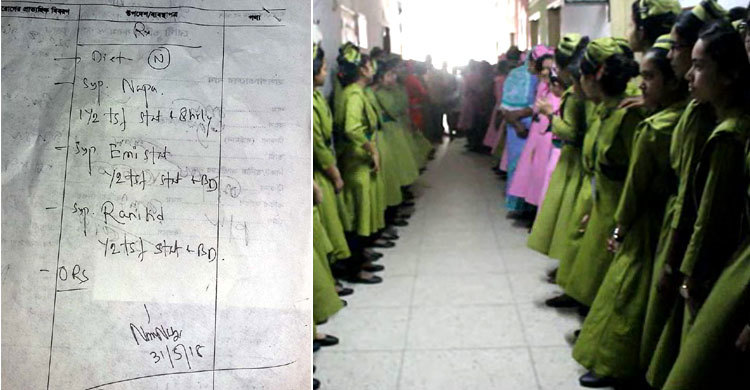 রোগের প্রাত্যহিক বিবরণ উপদেশ/ব্যবস্থাপত্র পথ্য
Rx
- Diet - N
- Syp. Napa
1 1/2 tsf stat + 8hrly
- Syp. Emistat
1/2 tsf stat + BD
- Syp. Ranitid
1/2 tsf stat + BD
- ORS
31/5/18